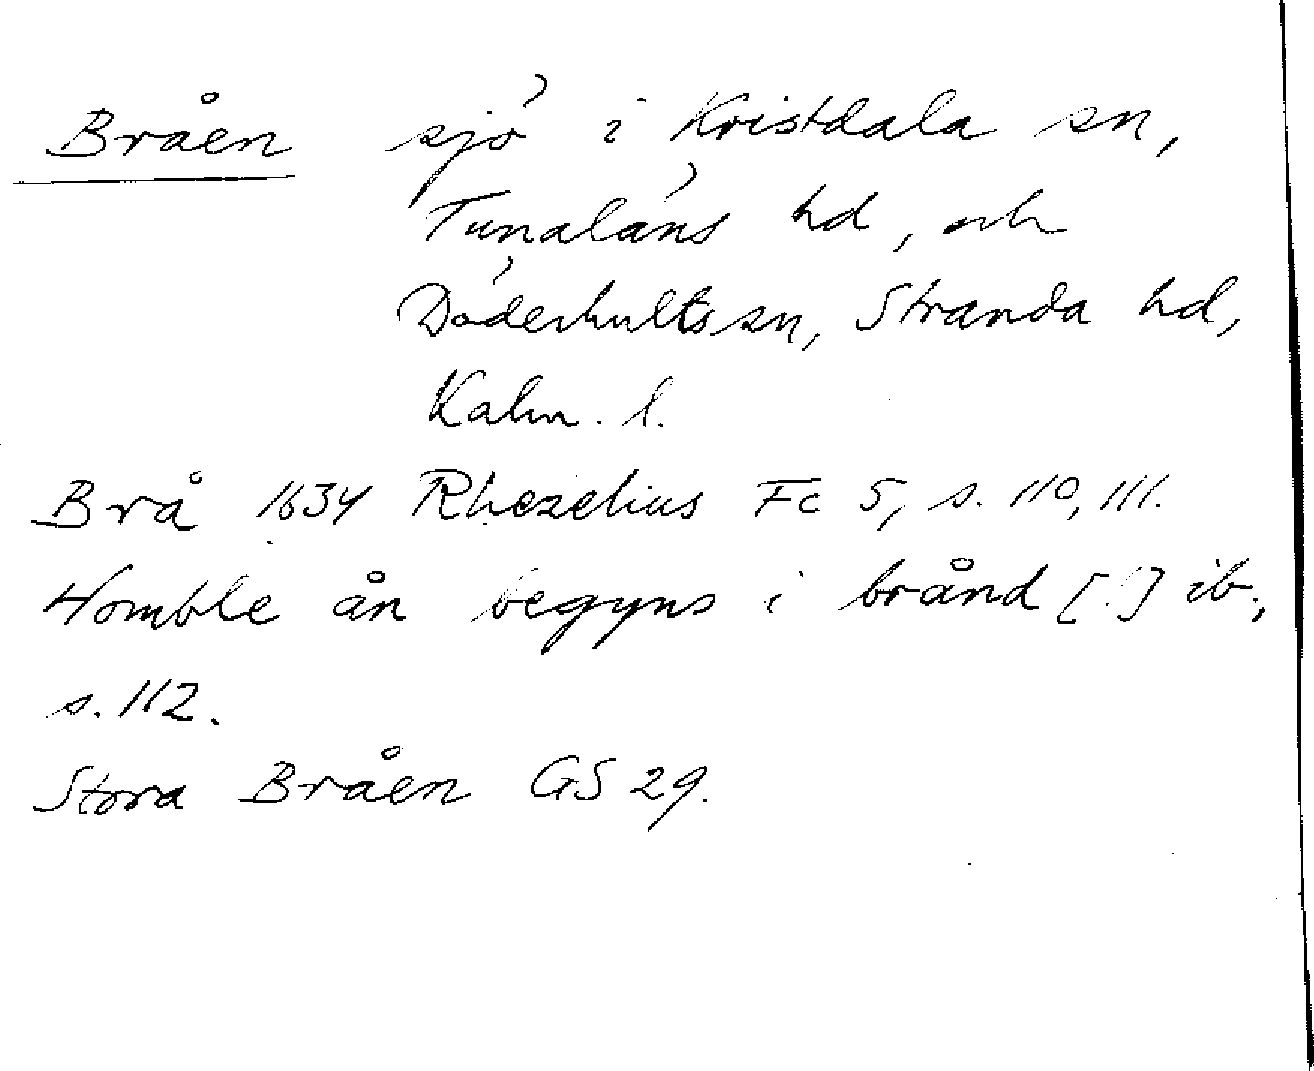 Bråen sjö i Kristdala sn,
Tunaläns hd, och
Döderhults sn, Stranda hd,
Kalm. l.
Brå 1634 Rhezelius Fc 5, s. 110, 111.
Homble ån begyns i brånd [!] ib.,
s. 112.
Stora Bråen GS 29.